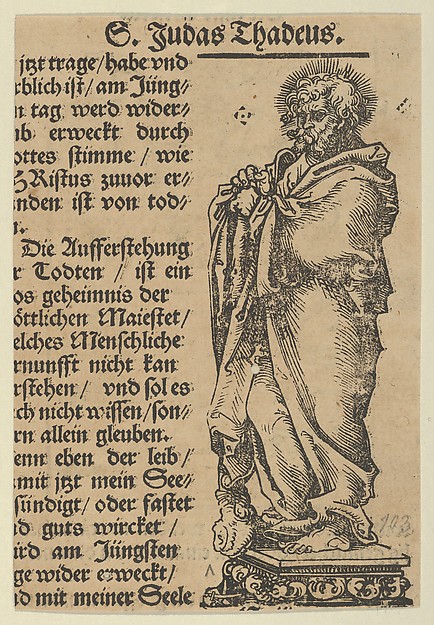 S. Judas Thadeus.
jtzt trage/habe vnd
rblich ist/am Jüng⸗
n tag werd wider⸗
nb erweckt durch
ottes stimme / wie
HRistus zuuor er⸗
anden ist von tod⸗
n.
Die Aufferstehung
r Todten / ist ein
os geheimnis der
öttlichen Maiestet/
elches Menschliche
rnunfft nicht kan
rstehen/ vnd sol es
ch nicht wissen/son⸗
rn allein gleuben.
enn eben der leib/
mit jtzt mein See⸗
sündigt/oder fastet
d guts wircket/
ird am Jüngsten
ge wider erweckt/
d mit meiner Seele
A